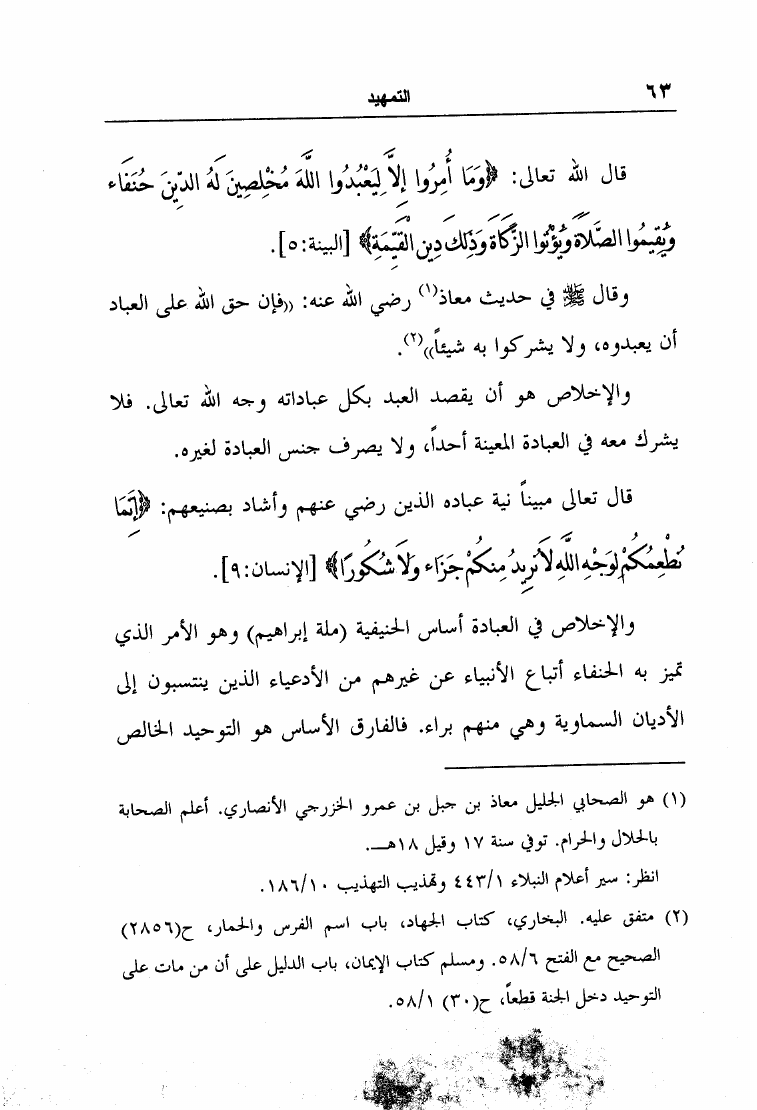 ٦٣
التمهيد
قال الله تعالى: ﴿وَمَا أُمِرُوا إِلاَّ لِيَعْبُدُوا اللَّهَ مُخْلِصِينَ لَهُ الدِّينَ حُنَفَاء
وَيُقِيمُوا الصَّلاَةَ وَيُؤْتُوا الزَّكَاةَ وَذَلِكَ دِينُ الْقَيِّمَةِ﴾ [البينة:٥].
وقال ﷺ في حديث معاذ(١) رضي الله عنه: ((فإن حق الله على العباد
أن يعبدوه، ولا يشركوا به شيئاً))(٢).
والإخلاص هو أن يقصد العبد بكل عباداته وجه الله تعالى. فلا
يشرك معه في العبادة المعينة أحداً، ولا يصرف جنس العبادة لغيره.
قال تعالى مبيناً نية عباده الذين رضي عنهم وأشاد بصنيعهم: ﴿إِنَّمَا
نُطْعِمُكُمْ لِوَجْهِ اللَّهِ لاَ نُرِيدُ مِنكُمْ جَزَاء وَلاَ شُكُورًا﴾ [الإنسان:٩].
والإخلاص في العبادة أساس الحنيفية (ملة إبراهيم) وهو الأمر الذي
تميز به الحنفاء أتباع الأنبياء عن غيرهم من الأدعياء الذين ينتسبون إلى
الأديان السماوية وهي منهم براء. فالفارق الأساس هو التوحيد الخالص
(١) هو الصحابي الجليل معاذ بن جبل بن عمرو الخزرجي الأنصاري. أعلم الصحابة
بالحلال والحرام. توفي سنة ١٧ وقيل ١٨هـ.
انظر: سير أعلام النبلاء ٤٤٣/١ وتهذيب التهذيب ١٨٦/١٠.
(٢) متفق عليه. البخاري، كتاب الجهاد، باب اسم الفرس والحمار، ح(٢٨٥٦)
الصحيح مع الفتح ٥٨/٦. ومسلم كتاب الإيمان، باب الدليل على أن من مات على
التوحيد دخل الجنة قطعاً، ح(٣٠) ٥٨/١.